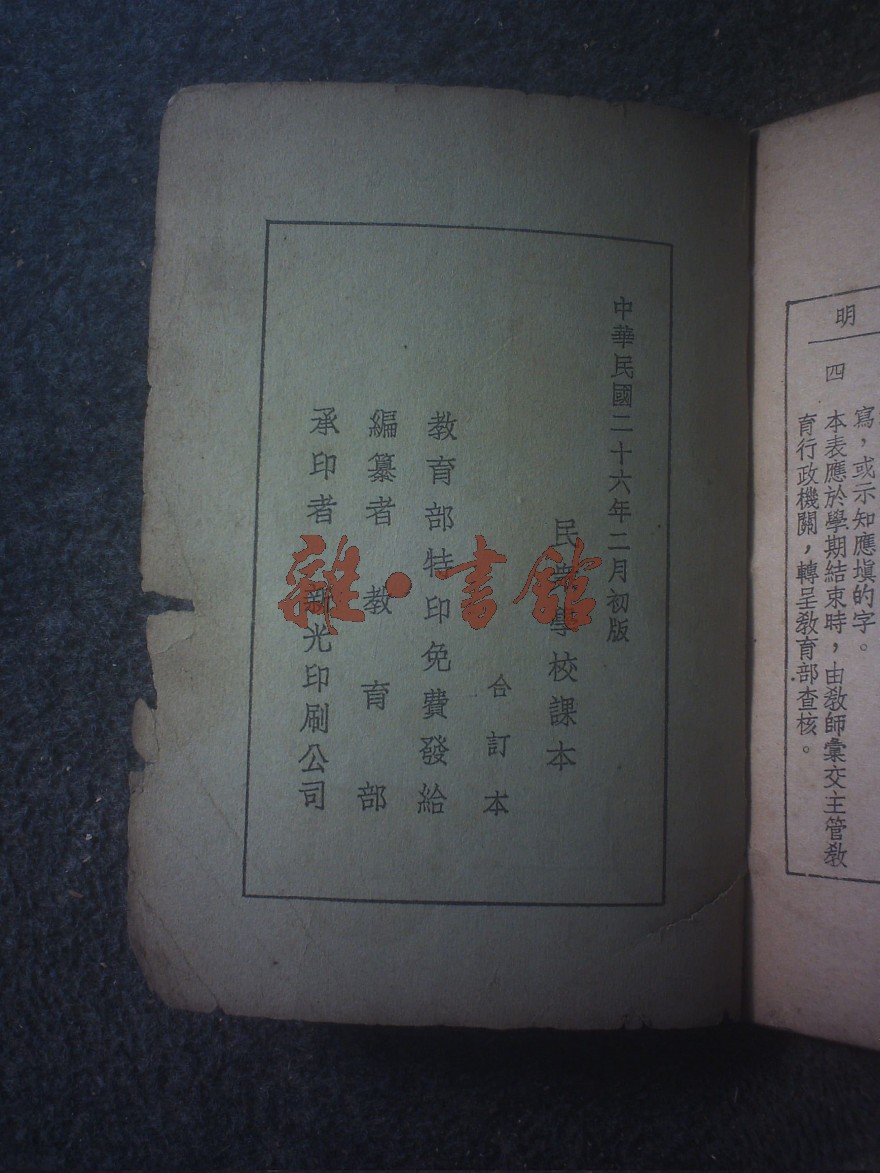 明
寫，或示知應塡的字。
四 本表應於學期結束時，由敎師彙交主管敎
育行政機關，轉呈敎育部查核。
中華民國二十六年二月初版
民衆學校課本
合訂本
教育部特印免費發給
編纂者 教育部
承印者 新光印刷公司
雜·書館